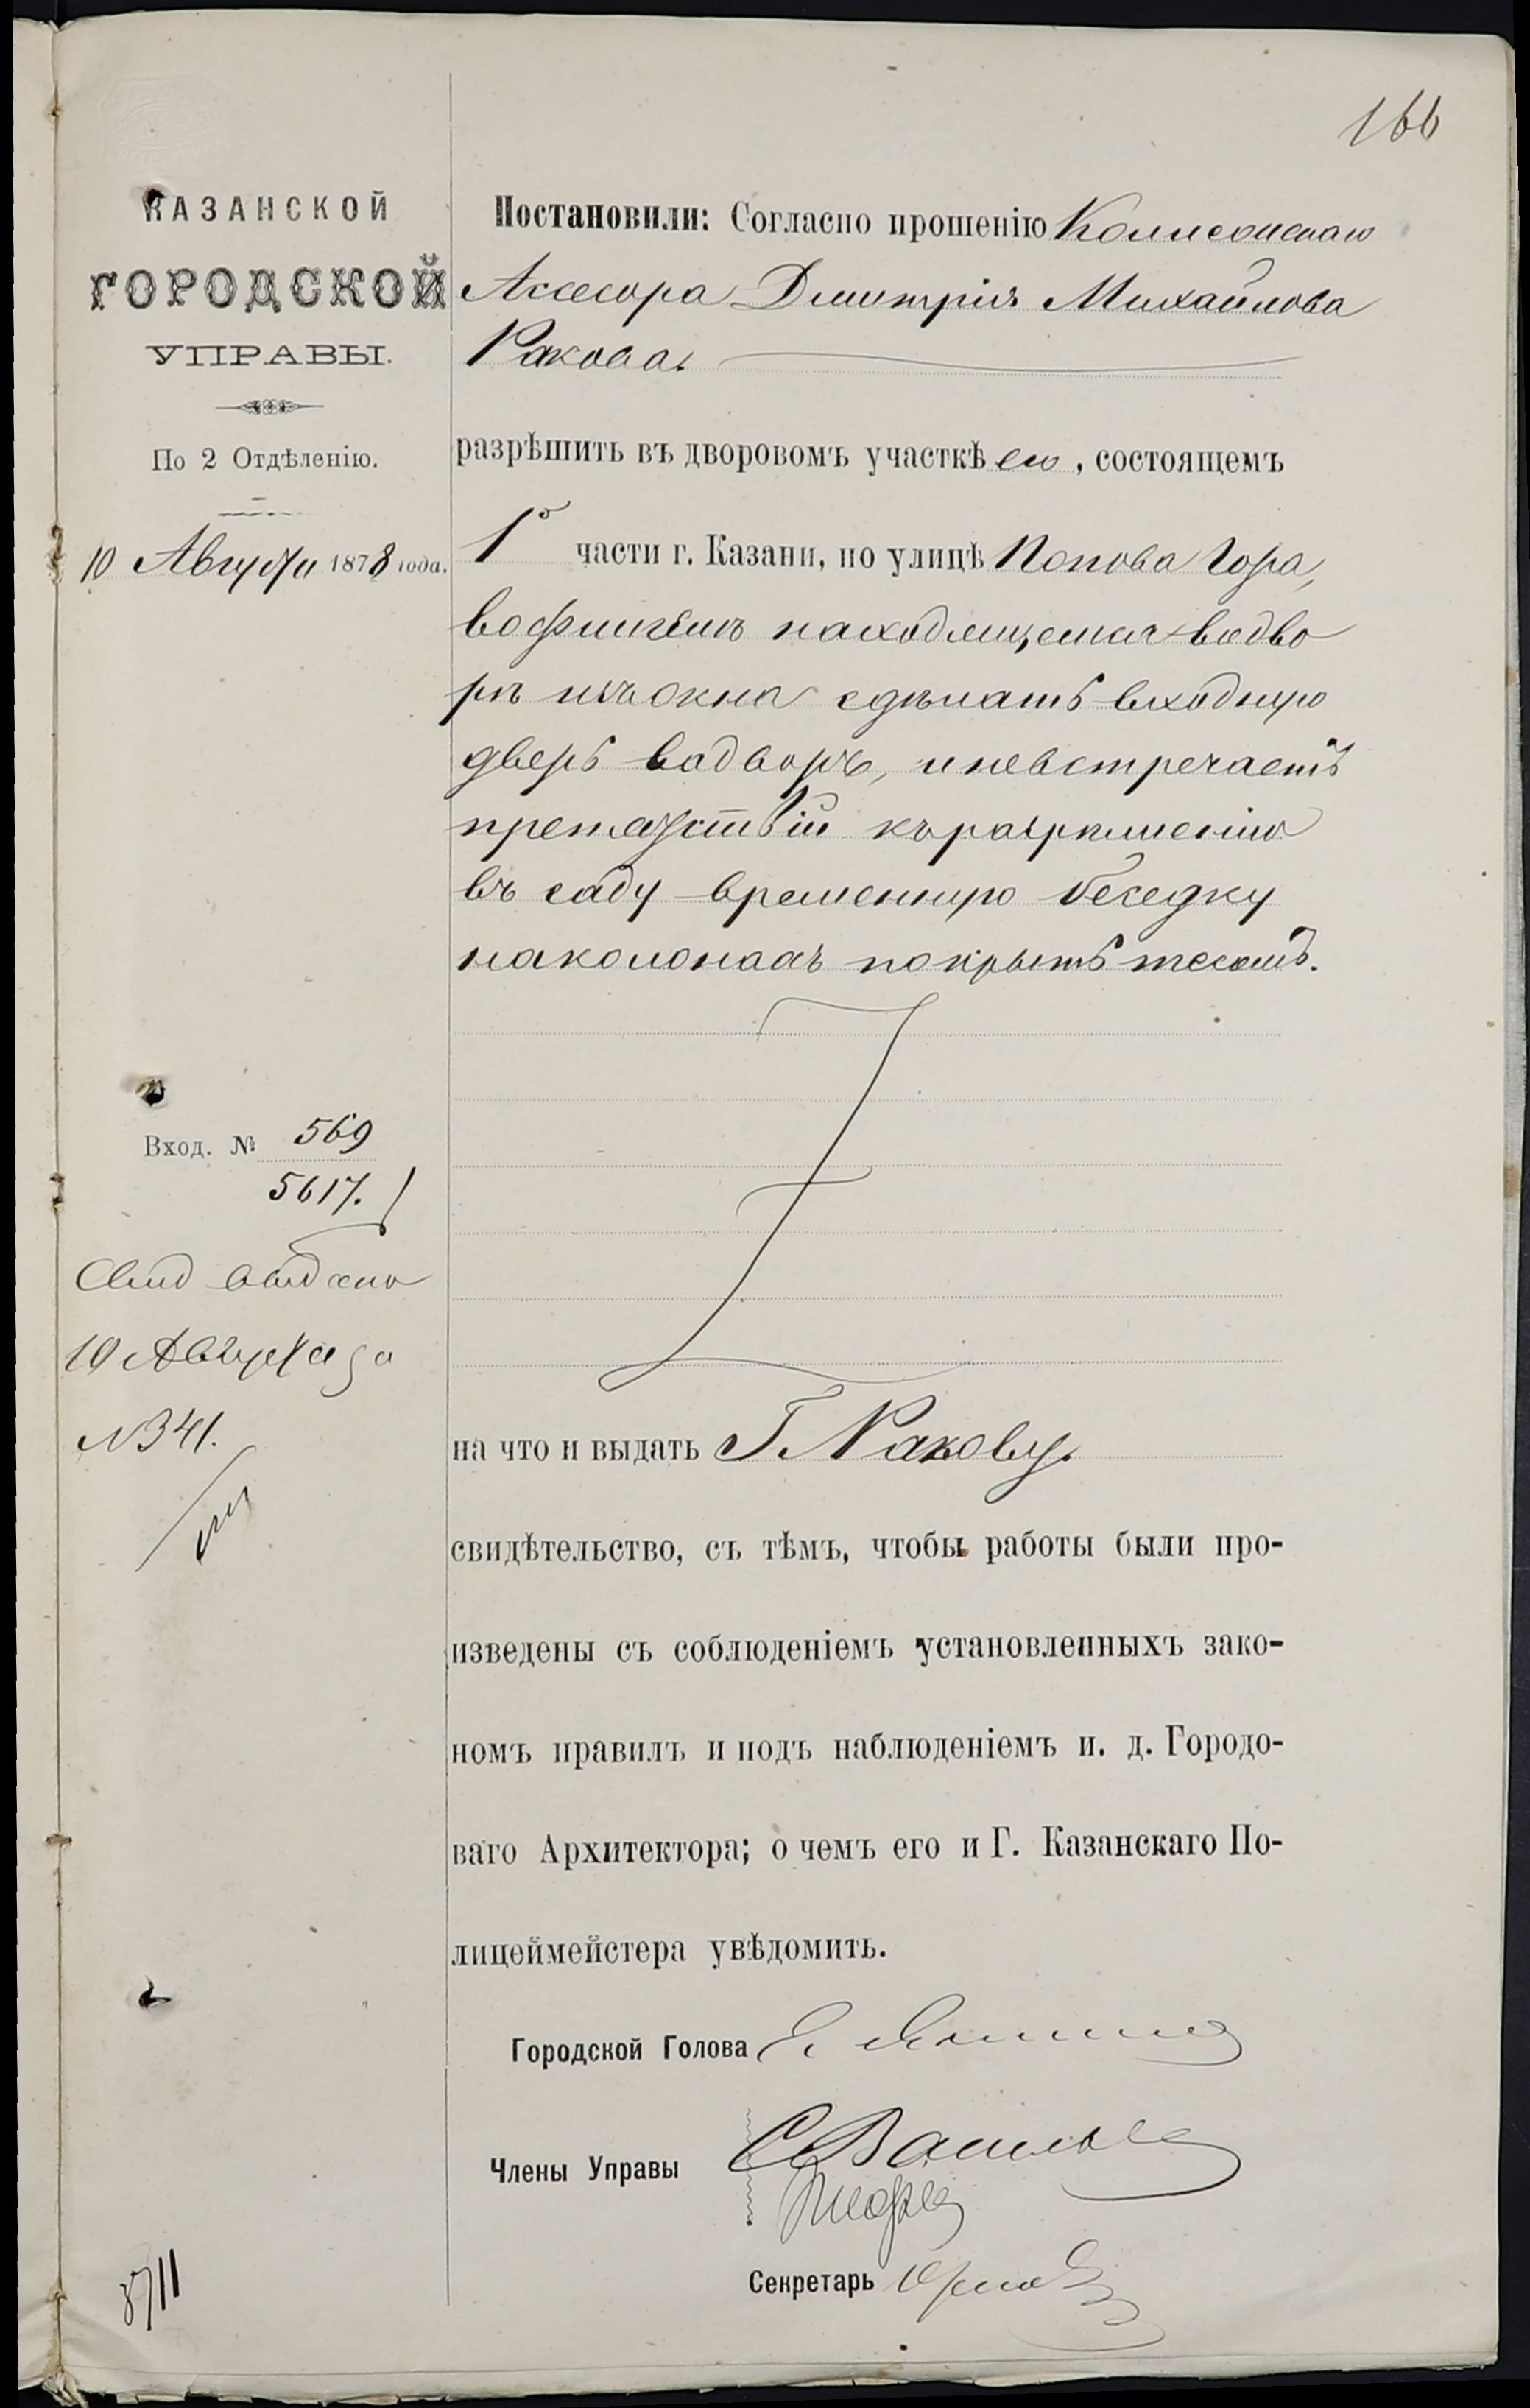 166
КАЗАНСКОЙ
ГОРОДСКОЙ
УПРАВЫ.
По 2 Отдѣленію.
10 Августа 1878 года.
Постановили: Согласно прошенію Колежскаго
Ассесора Дмитрія Михайлова
Ракова
разрѣшить въ дворовомъ участкѣ его, состоящемъ
1й части г. Казани, по улицѣ Попова Гора,
во флигелѣ находящемся во дво
рѣ изъ окна сдѣлать входную
дверь во дворъ, и невстречаетъ
препятствій къ разрѣшенію
въ саду временную беседку
на колонахъ покрыть тесомъ.
Вход. № 569
5617.
Свид выдано
10 Августа за
№ 341.
на что и выдать Г. Ракову.
свидѣтельство, съ тѣмъ, чтобы работы были про-
изведены съ соблюденіемъ установленныхъ зако-
номъ правилъ и подъ наблюденіемъ и. д. Городо-
ваго Архитектора; о чемъ его и Г. Казанскаго По-
лицеймейстера увѣдомить.
Городской Голова
Члены Управы
Секретарь